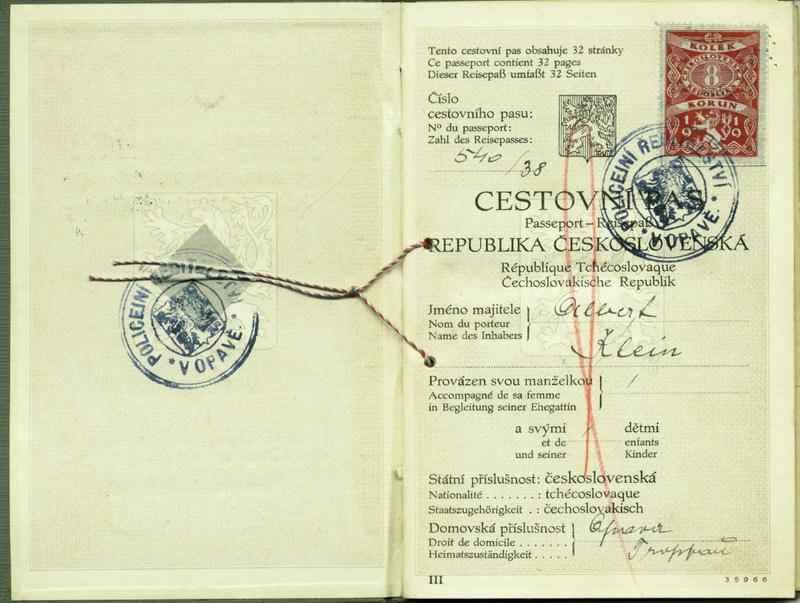 POLICEJNÍ ŘEDITELSTVÍ * V OPAVĚ. *
Tento cestovní pas obsahuje 32 stránky
Ce passeport contient 32 pages
Dieser Reisepaß umfaßt 32 Seiten
Číslo
cestovního pasu:
Nº du passeport:
Zahl des Reisepasses:
540/38
ČR
KOLEK
ČESKOSLOVENSKÁ
8
KORUN
1919
POLICEJNÍ ŘEDITELSTVÍ * V OPAVĚ. *
CESTOVNÍ PAS
Passeport – Reisepaß
REPUBLIKA ČESKOSLOVENSKÁ
République Tchécoslovaque
Čechoslovakische Republik
Jméno majitele
Nom du porteur
Name des Inhabers
Albert
Klein
Provázen svou manželkou
Accompagné de sa femme
in Begleitung seiner Ehegattin
/
a svými / dětmi
et de enfants
und seiner Kinder
Státní příslušnost: československá
Nationalité . . . . . . . : tchécoslovaque
Staatszugehörigkeit . : čechoslovakisch
Domovská příslušnost
Droit de domicile . . . . . . .
Heimatszuständigkeit . . . . .
Opava
Troppau
III
35966